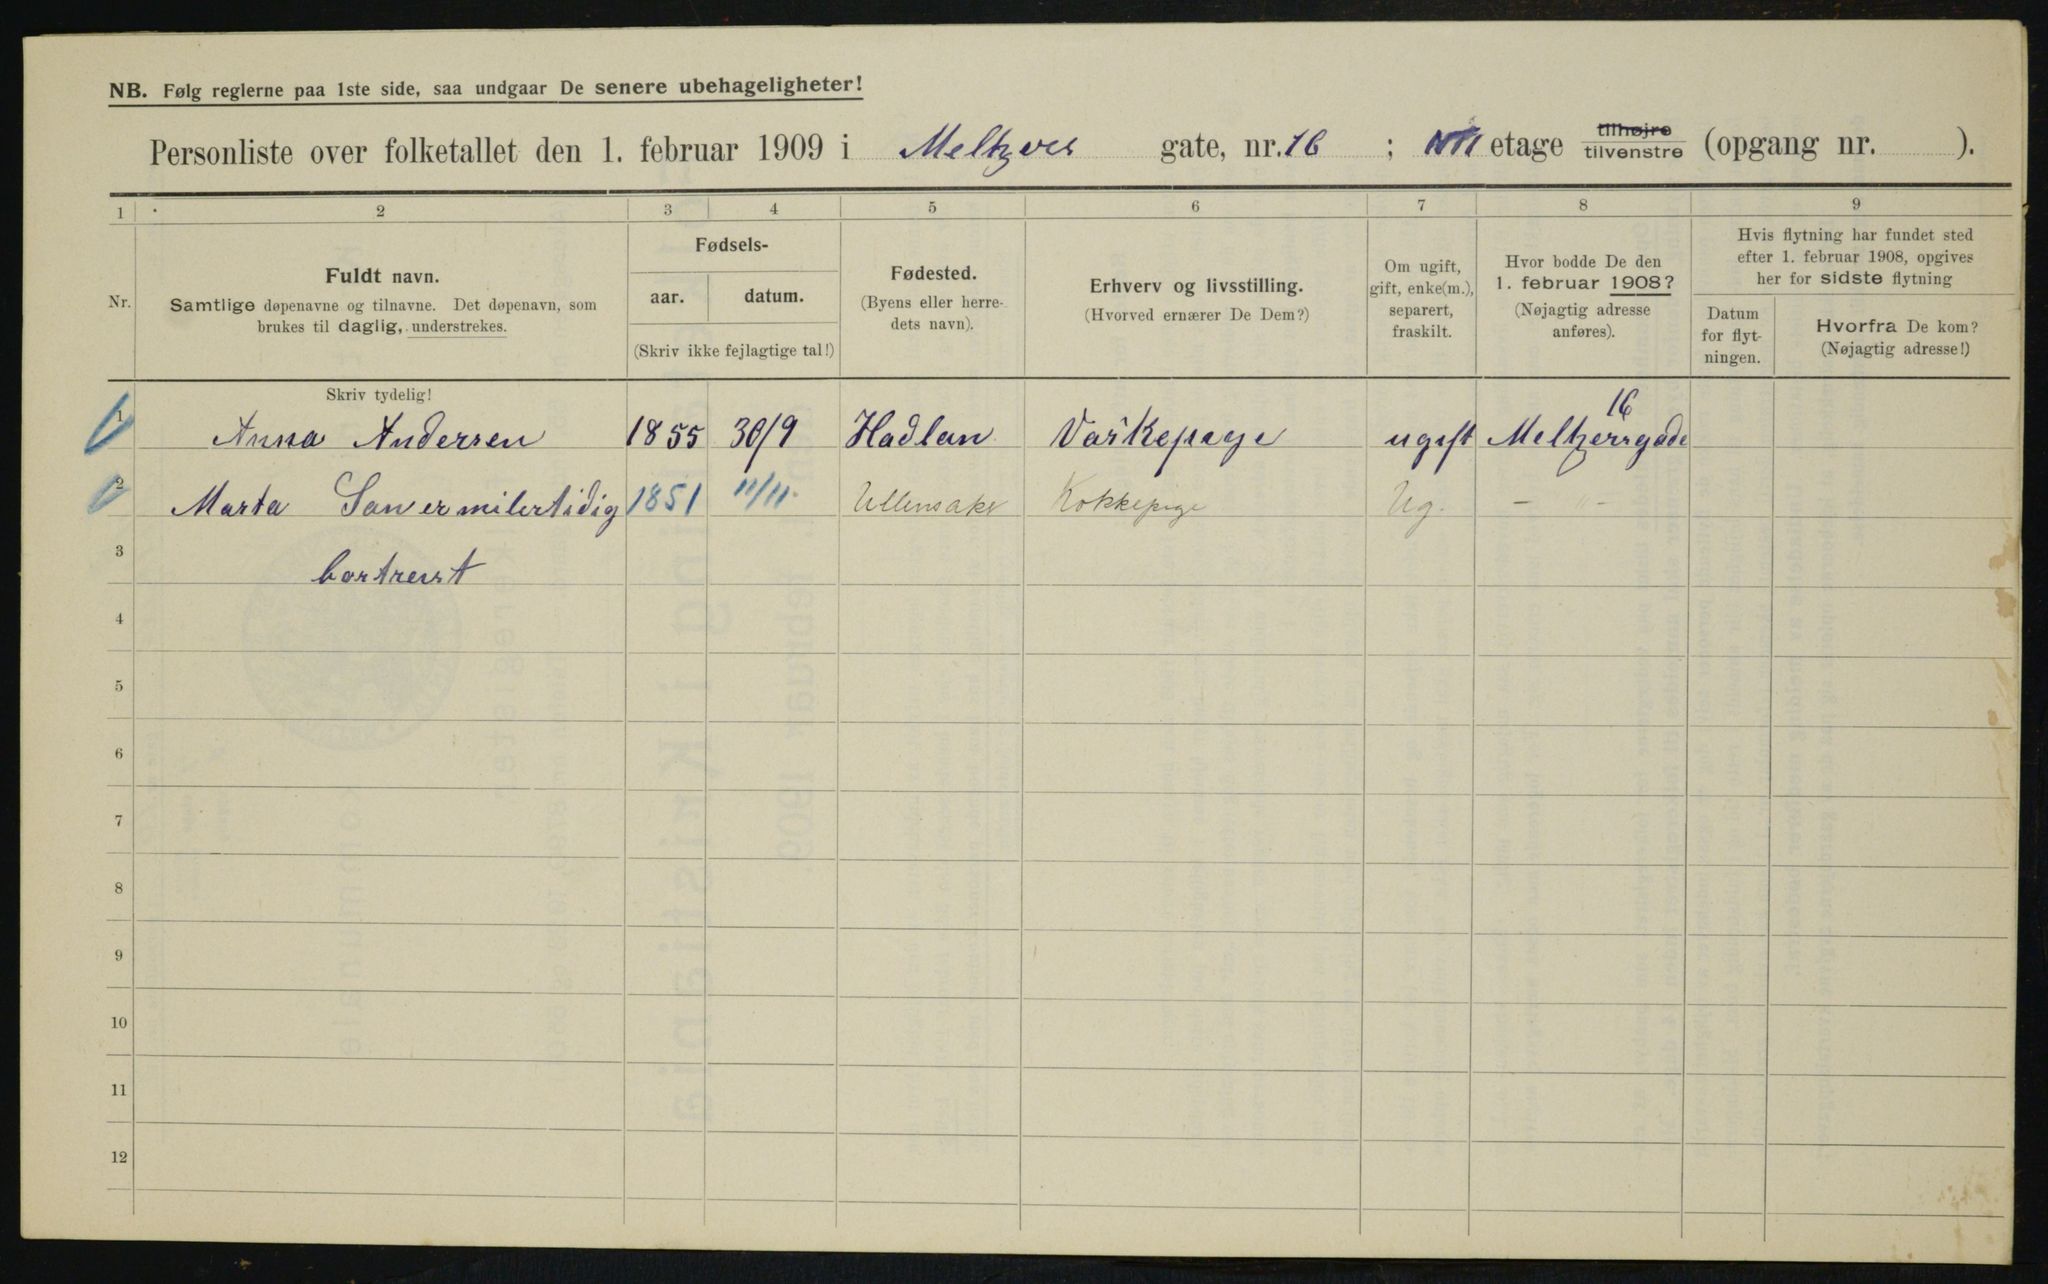 NB. Følg reglerne paa 1ste side, saa undgaar De senere ubehageligheter!
Personliste over folketallet den 1. februar 1909 i Meltzers gate, nr. 16 ; etage tilhøjre tilvenstre (opgang nr. ).
1 2 3 4 5 6 7 8 9
Nr.
Fuldt navn.
Samtlige døpenavne og tilnavne. Det døpenavn, som
brukes til daglig, understrekes.
Fødsels-
aar. datum.
(Skriv ikke fejlagtige tal!)
Fødested.
(Byens eller herre-
dets navn).
Erhverv og livsstilling.
(Hvorved ernærer De Dem?)
Om ugift,
gift, enke(m.),
separert,
fraskilt.
Hvor bodde De den
1. februar 1908?
(Nøjagtig adresse
anføres).
Hvis flytning har fundet sted
efter 1. februar 1908, opgives
her for sidste flytning
Datum
for flyt-
ningen.
Hvorfra De kom?
(Nøjagtig adresse!)
Skriv tydelig!
16
1 Anna Andersen 1855 30/9 Hadlan Vaskepige ugift Meltzersgade
2 Marta San er milertidig 1851 11/11. Ullensaker Kokkepige Ug. — " —
3 bortreist
4
5
6
7
8
9
10
11
12